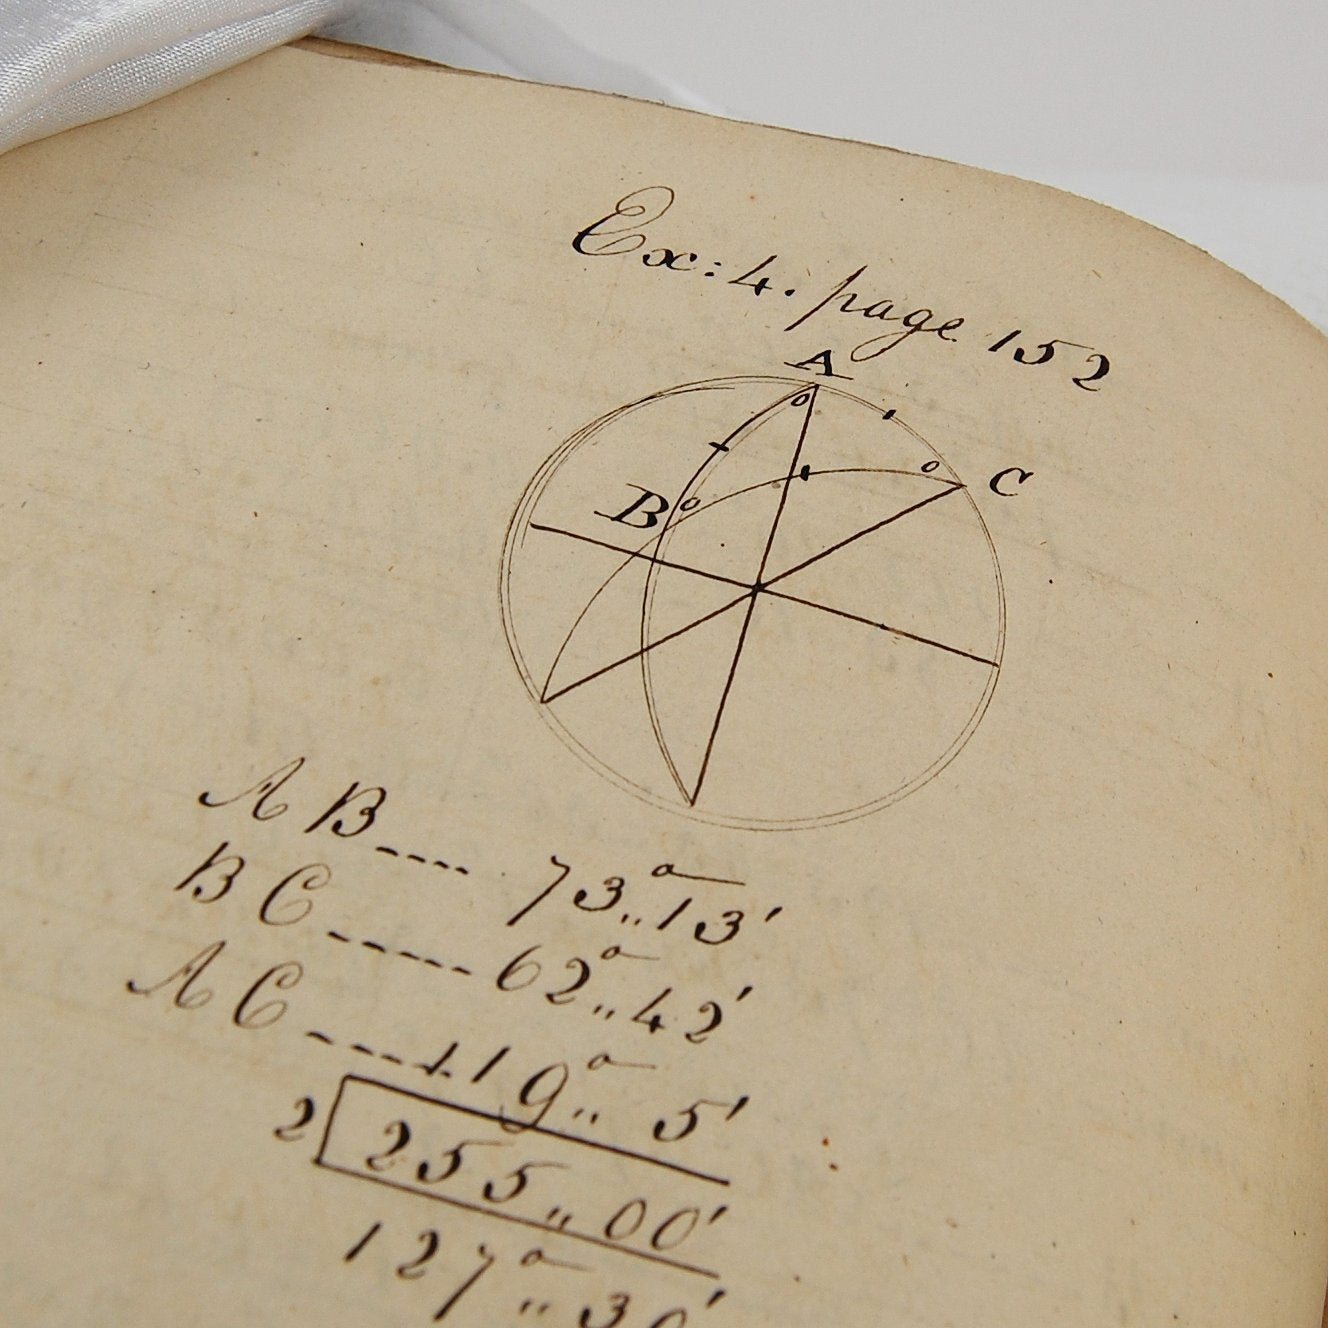 Ex: 4. page 152
A
C
B
AB---- 73°„13'
BC----- 62°„42'
AC-----119°„ 5'
2 255„00'
127°„30'